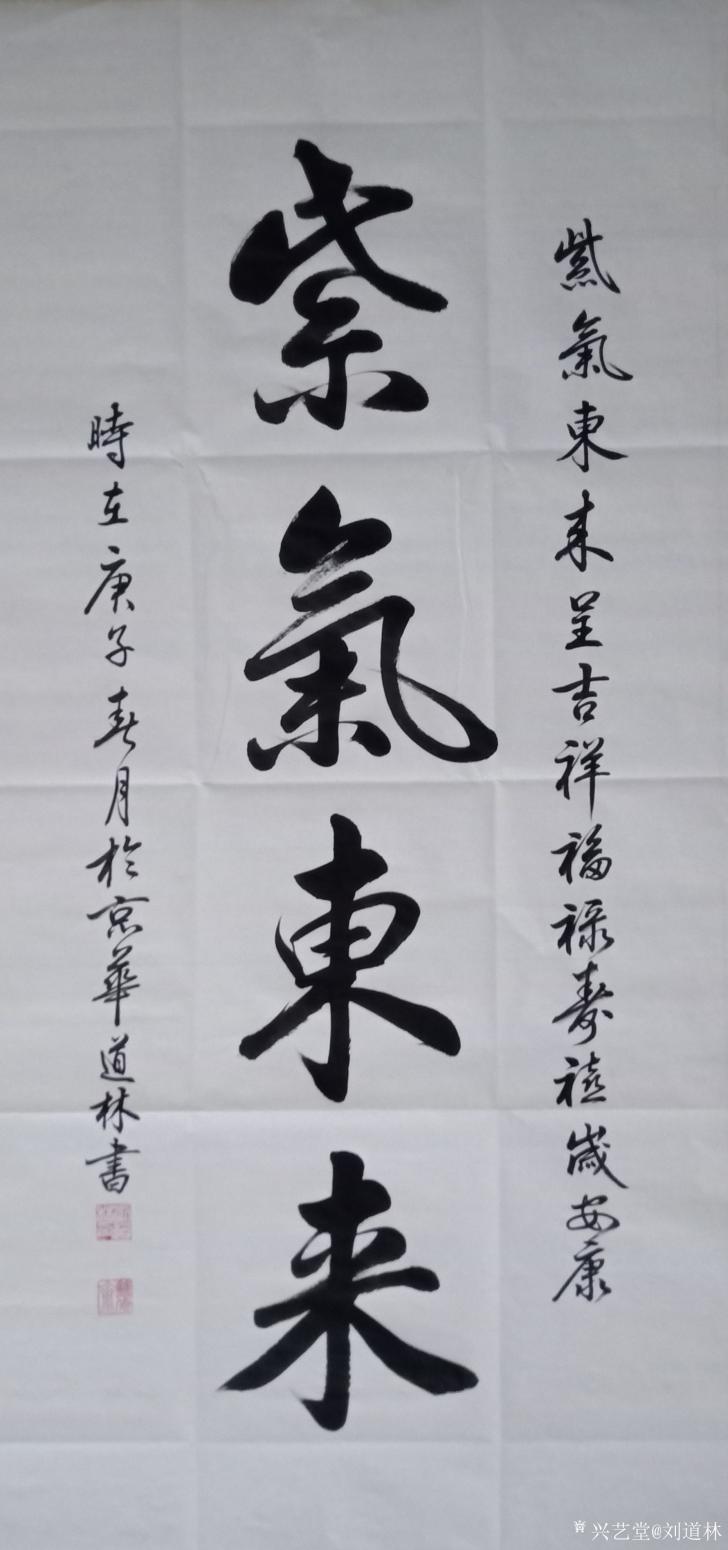 紫氣東来呈吉祥福禄寿禧歲安康
紫氣東来
時在庚子春月於京華道林書
兴艺堂@刘道林